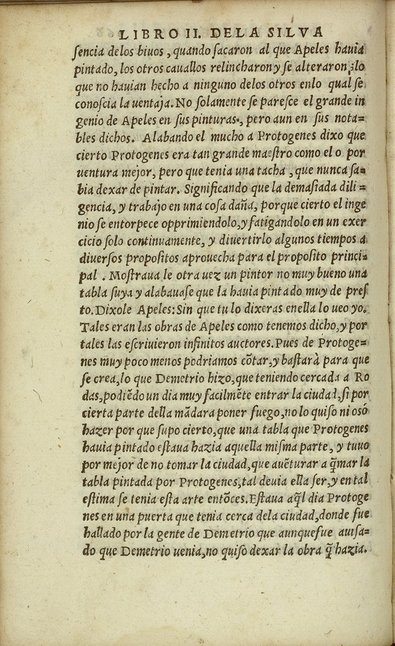 LIBRO II. DELA SILVA
sencia delos biuos, quando sacaron al que Apeles hauia
pintado, los otros cauallos relincharon y se alteraron; lo
que no hauian hecho a ninguno delos otros enlo qual se
conoscia la uentaja. No solamente se paresce el grande in
genio de Apeles en sus pinturas, pero aun en sus nota=
bles dichos. Alabando el mucho a Protogenes dixo que
cierto Protogenes era tan grande maestro como el o por
uentura mejor, pero que tenia una tacha, que nunca sa=
bia dexar de pintar. Significando que la demasiada dili=
gencia, y trabajo en una cosa daña, porque cierto el inge
nio se entorpece opprimiendolo, y fatigandolo en un exer
cicio solo continuamente, y diuertirlo algunos tiempos a
diuersos propositos aprouecha para el proposito princi=
pal. Mostraua le otra uez un pintor no muy bueno una
tabla suya y alabauase que la hauia pintado muy de pres
to. Dixole Apeles: Sin que tu lo dixeras enella lo ueo yo.
Tales eran las obras de Apeles como tenemos dicho, y por
tales las escriuieron infinitos auctores. Pues de Protoge=
nes muy poco menos podriamos cõtar, y bastarà para que
se crea, lo que Demetrio hizo, que teniendo cercada a Ro
das, podiẽdo un dia muy facilmẽte entrar la ciudad, si por
cierta parte della mãdara poner fuego, no lo quiso ni osó
hazer por que supo cierto, que una tabla que Protogenes
hauia pintado estaua hazia aquella misma parte, y tuuo
por mejor de no tomar la ciudad, que auẽturar a q̃mar la
tabla pintada por Protogenes, tal deuia ella ser, y en tal
estima se tenia esta arte entõces. Estaua aq̃l dia Protoge
nes en una puerta que tenia cerca dela ciudad, donde fue
hallado por la gente de Demetrio que aunque fue auisa=
do que Demetrio uenia, no quiso dexar la obra q̃ hazia.